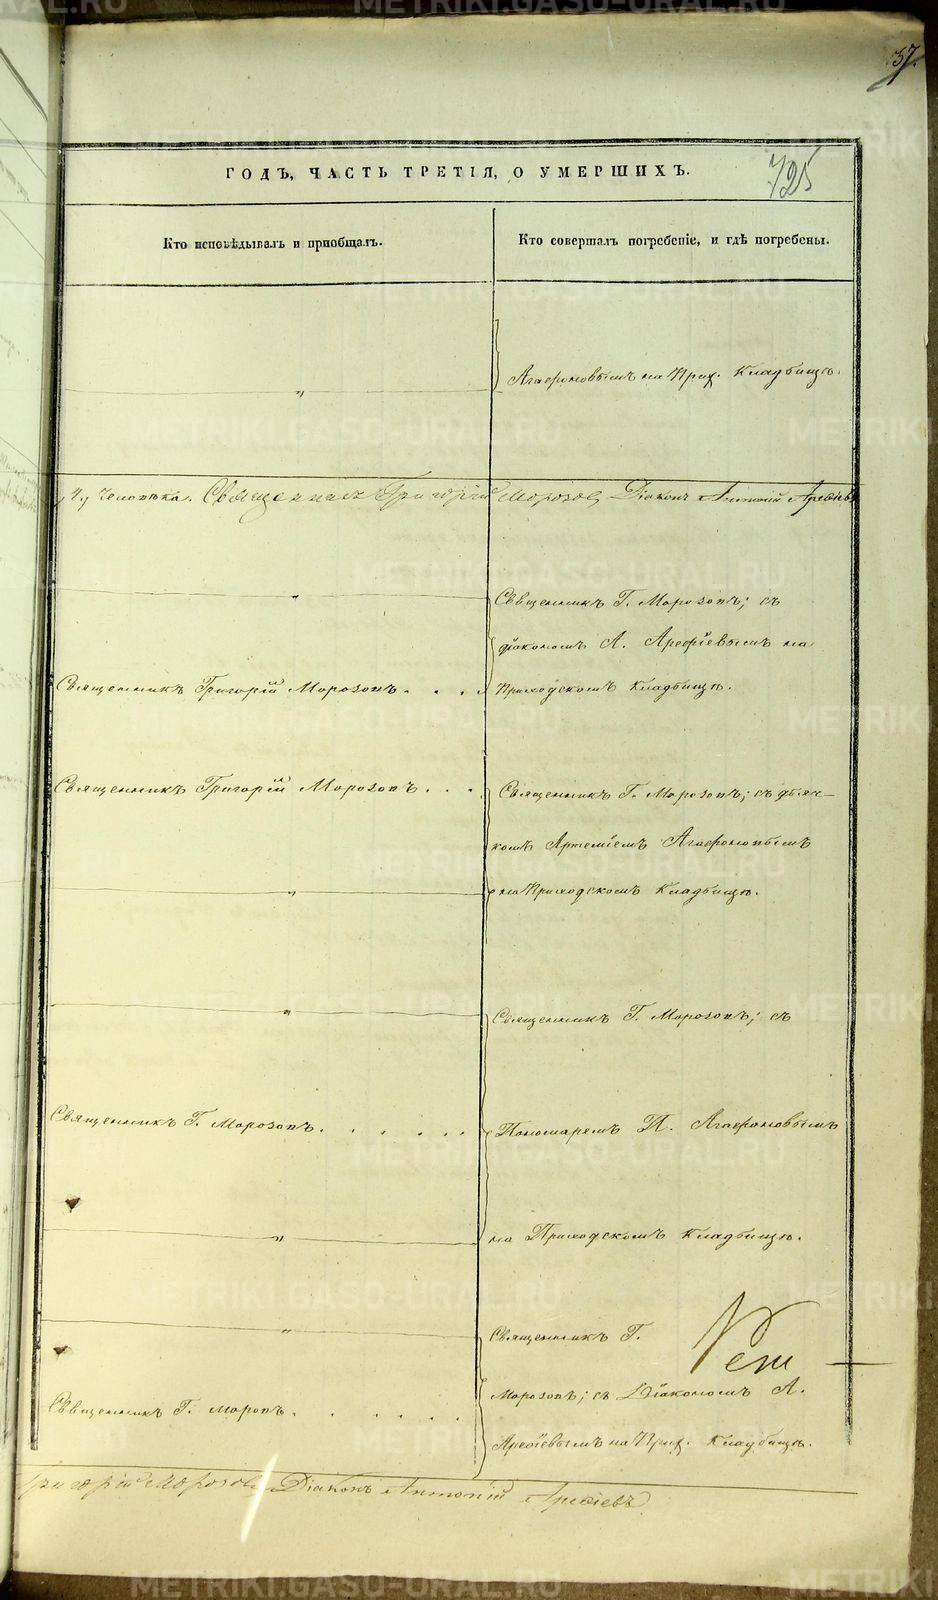 37.
725
ГОДЪ, ЧАСТЬ ТРЕТІЯ, О УМЕРШИХЪ.
Кто исповѣдывалъ и пріобщалъ.
Кто совершалъ погребеніе, и гдѣ погребены.
Агаѳоновымъ на Прих. Кладбищѣ.
„
человѣка. Священникъ Григорій Морозовъ Діаконъ Антоній Арефіевъ
„
Священникъ Г. Морозовъ; съ
діакономъ А. Арефіевымъ на
Священникъ Григорій Морозовъ . . . .
Приходскомъ Кладбищѣ.
Священникъ Григорій Морозовъ . . .
Священникъ Г. Морозовъ; съ дьяч-
комъ Артеміемъ Агаѳоновымъ
„
на Приходскомъ Кладбищѣ.
„
Священникъ Г. Морозовъ; съ
Священникъ Г. Морозовъ . . . . . .
Пономаремъ П. Агаѳоновымъ
„
на Приходскомъ Кладбищѣ.
„
Священникъ Г.
Морозовъ; съ Діакономъ А.
Священникъ Г. Моровъ . . . . . .
Арефіевымъ на Прих. Кладбищѣ.
Григорій Морозовъ Діаконъ Антоній Арефіевъ
METRIKI.GASO-URAL.RU